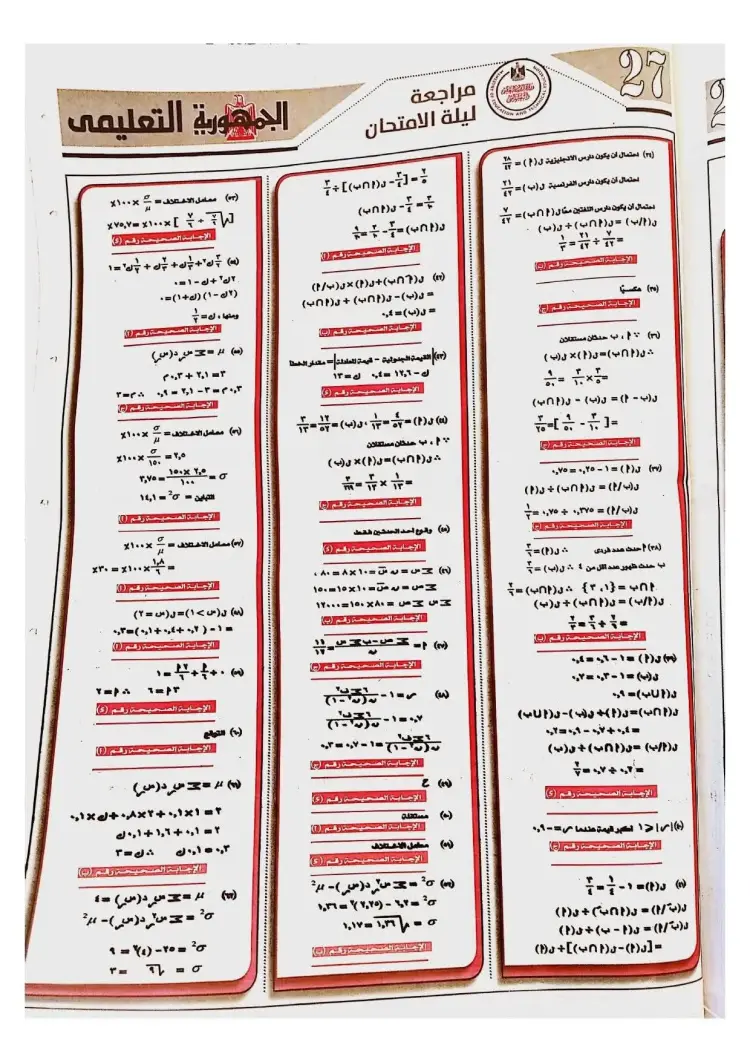 27
مراجعة
ليلة الامتحان
الجمهورية التعليمى
(٣٤) احتمال أن يكون دارس الانجليزية ل(أ) = ٢٨/٤٢
احتمال أن يكون دارس الفرنسية ل(ب) = ٢١/٤٢
احتمال أن يكون دارس اللغتين معًا ل(أ∩ب) = ٧/٤٢
ل(أ/ب) = ل(أ∩ب) ÷ ل(ب)
= ٧/٤٢ ÷ ٢١/٤٢ = ١/٣
الإجابة الصحيحة رقم (ب)
(٣٥) عكسيًا
الإجابة الصحيحة رقم (ج)
(٣٦) ∵ أ ، ب حدثان مستقلان
∴ ل(أ∩ب) = ل(أ) × ل(ب)
= ٣/٥ × ٣/١٠ = ٩/٥٠
ل(ب - أ) = ل(ب) - ل(أ∩ب)
= [٣/١٠ - ٩/٥٠] = ٣/٢٥
الإجابة الصحيحة رقم (ج)
(٣٧) ل(أ) = ١ - ٠,٢٥ = ٠,٧٥
ل(ب/أ) = ل(أ∩ب) ÷ ل(أ)
ل(ب/أ) = ٠,٣٧٥ ÷ ٠,٧٥ = ١/٢
الإجابة الصحيحة رقم (ج)
(٣٨) أ حدث عدد فردى ∴ ل(أ) = ٣/٦
ب حدث ظهور عدد أقل من ٤ ∴ ل(ب) = ٣/٦
أ∩ب = {١ ، ٣} ∴ ل(أ∩ب) = ٢/٦
ل(أ/ب) = ل(أ∩ب) ÷ ل(ب)
= ٢/٦ ÷ ٣/٦ = ٢/٣
الإجابة الصحيحة رقم (ب)
(٣٩) ل(أ) = ١ - ٠,٦ = ٠,٤
ل(ب) = ١ - ٠,٣ = ٠,٧
ل(أ∪ب) = ٠,٩
ل(أ∩ب) = ل(أ) + ل(ب) - ل(أ∪ب)
= ٠,٤ + ٠,٧ - ٠,٩ = ٠,٢
ل(أ/ب) = ل(أ∩ب) ÷ ل(ب)
= ٠,٢ ÷ ٠,٧ = ٢/٧
الإجابة الصحيحة رقم (د)
(٤٠) |ر| ≤ ١ أكبر قيمة عندما ر = - ٠,٩
الإجابة الصحيحة رقم (ج)
(٤١) ل(أ) = ١ - ١/٤ = ٣/٤
ل(بَ/أ) = ل(أ∩بَ) ÷ ل(أ)
ل(بَ/أ) = ل(أ - ب) ÷ ل(أ)
= [ل(أ) - ل(أ∩ب)] ÷ ل(أ)
٢/٥ = [٣/٤ - ل(أ∩ب)] ÷ ٣/٤
ل(أ∩ب) = ٣/٤
الإجابة الصحيحة رقم (أ)
(٤٢) ل(أ∩بَ) + ل(أ) × ل(ب/أ)
= ل(ب) - ل(أ∩ب) + ل(أ∩ب)
= ل(ب) = ٠,٤
الإجابة الصحيحة رقم (ب)
(٤٣) |القيمة الجدولية - قيمة المعادلة| = مقدار الخطأ
ك - ١٢,٦ = ٠,٤ ك = ١٣
الإجابة الصحيحة رقم (د)
(٤٤) ل(أ) = ٤/٥٢ = ١/١٣ ، ل(ب) = ١٢/٥٢ = ٣/١٣
∵ أ ، ب حدثان مستقلان
∴ ل(أ∩ب) = ل(أ) × ل(ب)
= ١/١٣ × ٣/١٣ = ٣/١٦٩
الإجابة الصحيحة رقم (ج)
(٤٥) وقوع أحد الحدثين فقط
الإجابة الصحيحة رقم (د)
(٤٦) مجـ س = ن س̄ = ١٠ × ٨ = ٨٠ ،
مجـ ص = ن ص̄ = ١٠ × ١٥ = ١٥٠
مجـ س مجـ ص = ٨٠ × ١٥٠ = ١٢٠٠٠
الإجابة الصحيحة رقم (ب)
(٤٧) أ = (مجـ ص - ب مجـ س)/ن = ١١/١٢
الإجابة الصحيحة رقم (ج)
(٤٨) ر = ١ - ٦ مجـ ف²/ن(ن² - ١)
٠,٧ = ١ - ٦ مجـ ف²/ن(ن² - ١)
٦ مجـ ف²/ن(ن² - ١) = ١ - ٠,٧ = ٠,٣
الإجابة الصحيحة رقم (ج)
(٤٩) ع
الإجابة الصحيحة رقم (د)
(٥٠) مستقلة
(٥١) معامل الاختلاف
الإجابة الصحيحة رقم (د)
(٥٢) σ² = مجـ س² ر د(س ر) - μ²
= ٦,٢ - (٢,٢٥)² = ١,٣٦
σ = √١,٣٦ = ١,١٧
الإجابة الصحيحة رقم (ب)
(٥٣) معامل الاختلاف = σ/μ × ١٠٠٪
الإجابة الصحيحة رقم (د)
(٥٤) ٣/٢ ك² + ١/٢ ك + ٢/٣ ك + ١/٢ ك² = ١
٢ك² + ك - ١ = ٠
(٢ك - ١) (ك + ١) = ٠
ومنها ، ك = ١/٢
الإجابة الصحيحة رقم (أ)
(٥٥) μ = مجـ س ر د(س ر)
٣ = ٢,١ + ٠,٣ م
٠,٣ م = ٣ - ٢,١ = ٠,٩ ∴ م = ٣
الإجابة الصحيحة رقم (ج)
(٥٦) معامل الاختلاف = σ/μ × ١٠٠٪
٢,٥ = σ/١٥٠ × ١٠٠٪
σ = ٢,٥ × ١٥٠/١٠٠ = ٣,٧٥
التباين = σ² = ١٤,١
الإجابة الصحيحة رقم (أ)
(٥٧) معامل الاختلاف = σ/μ × ١٠٠٪
= ١,٨/٦ × ١٠٠٪ = ٣٠٪
الإجابة الصحيحة رقم (أ)
(٥٨) ل(س > ١) = ل(س = ٢)
= ١ - (٠,٢ + ٠,٤ + ٠,١) = ٠,٣
الإجابة الصحيحة رقم (أ)
(٥٩) ٠ + أ/٦ + ٢أ/٦ = ١
٣أ = ٦ ∴ أ = ٢
الإجابة الصحيحة رقم (د)
(٦٠) التوقع
الإجابة الصحيحة رقم (أ)
(٦١) μ = مجـ س ر د(س ر)
٢ = ١ × ٠,١ + ٢ × ٠,٨ + ك × ٠,١
٢ = ٠,١ + ١,٦ + ٠,١ ك
٠,٣ = ٠,١ ك ∴ ك = ٣
الإجابة الصحيحة رقم (ب)
(٦٢) μ = مجـ س ر د(س ر) = ٤
σ² = مجـ س² ر د(س ر) - μ²
σ² = ٢٥ - (٤)² = ٩
σ = √٩ = ٣